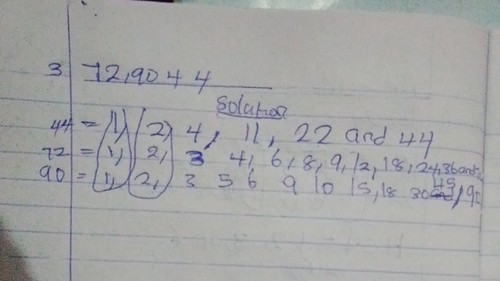 3 72,90 & 44
Solution
44 = 1, 2, 4, 11, 22 and 44
72 = 1, 2, 3 4, 6, 8, 9, 12, 18, 24, 36 and
90 = 1, 2, 3 5 6 9 10 15, 18 30 45, 90